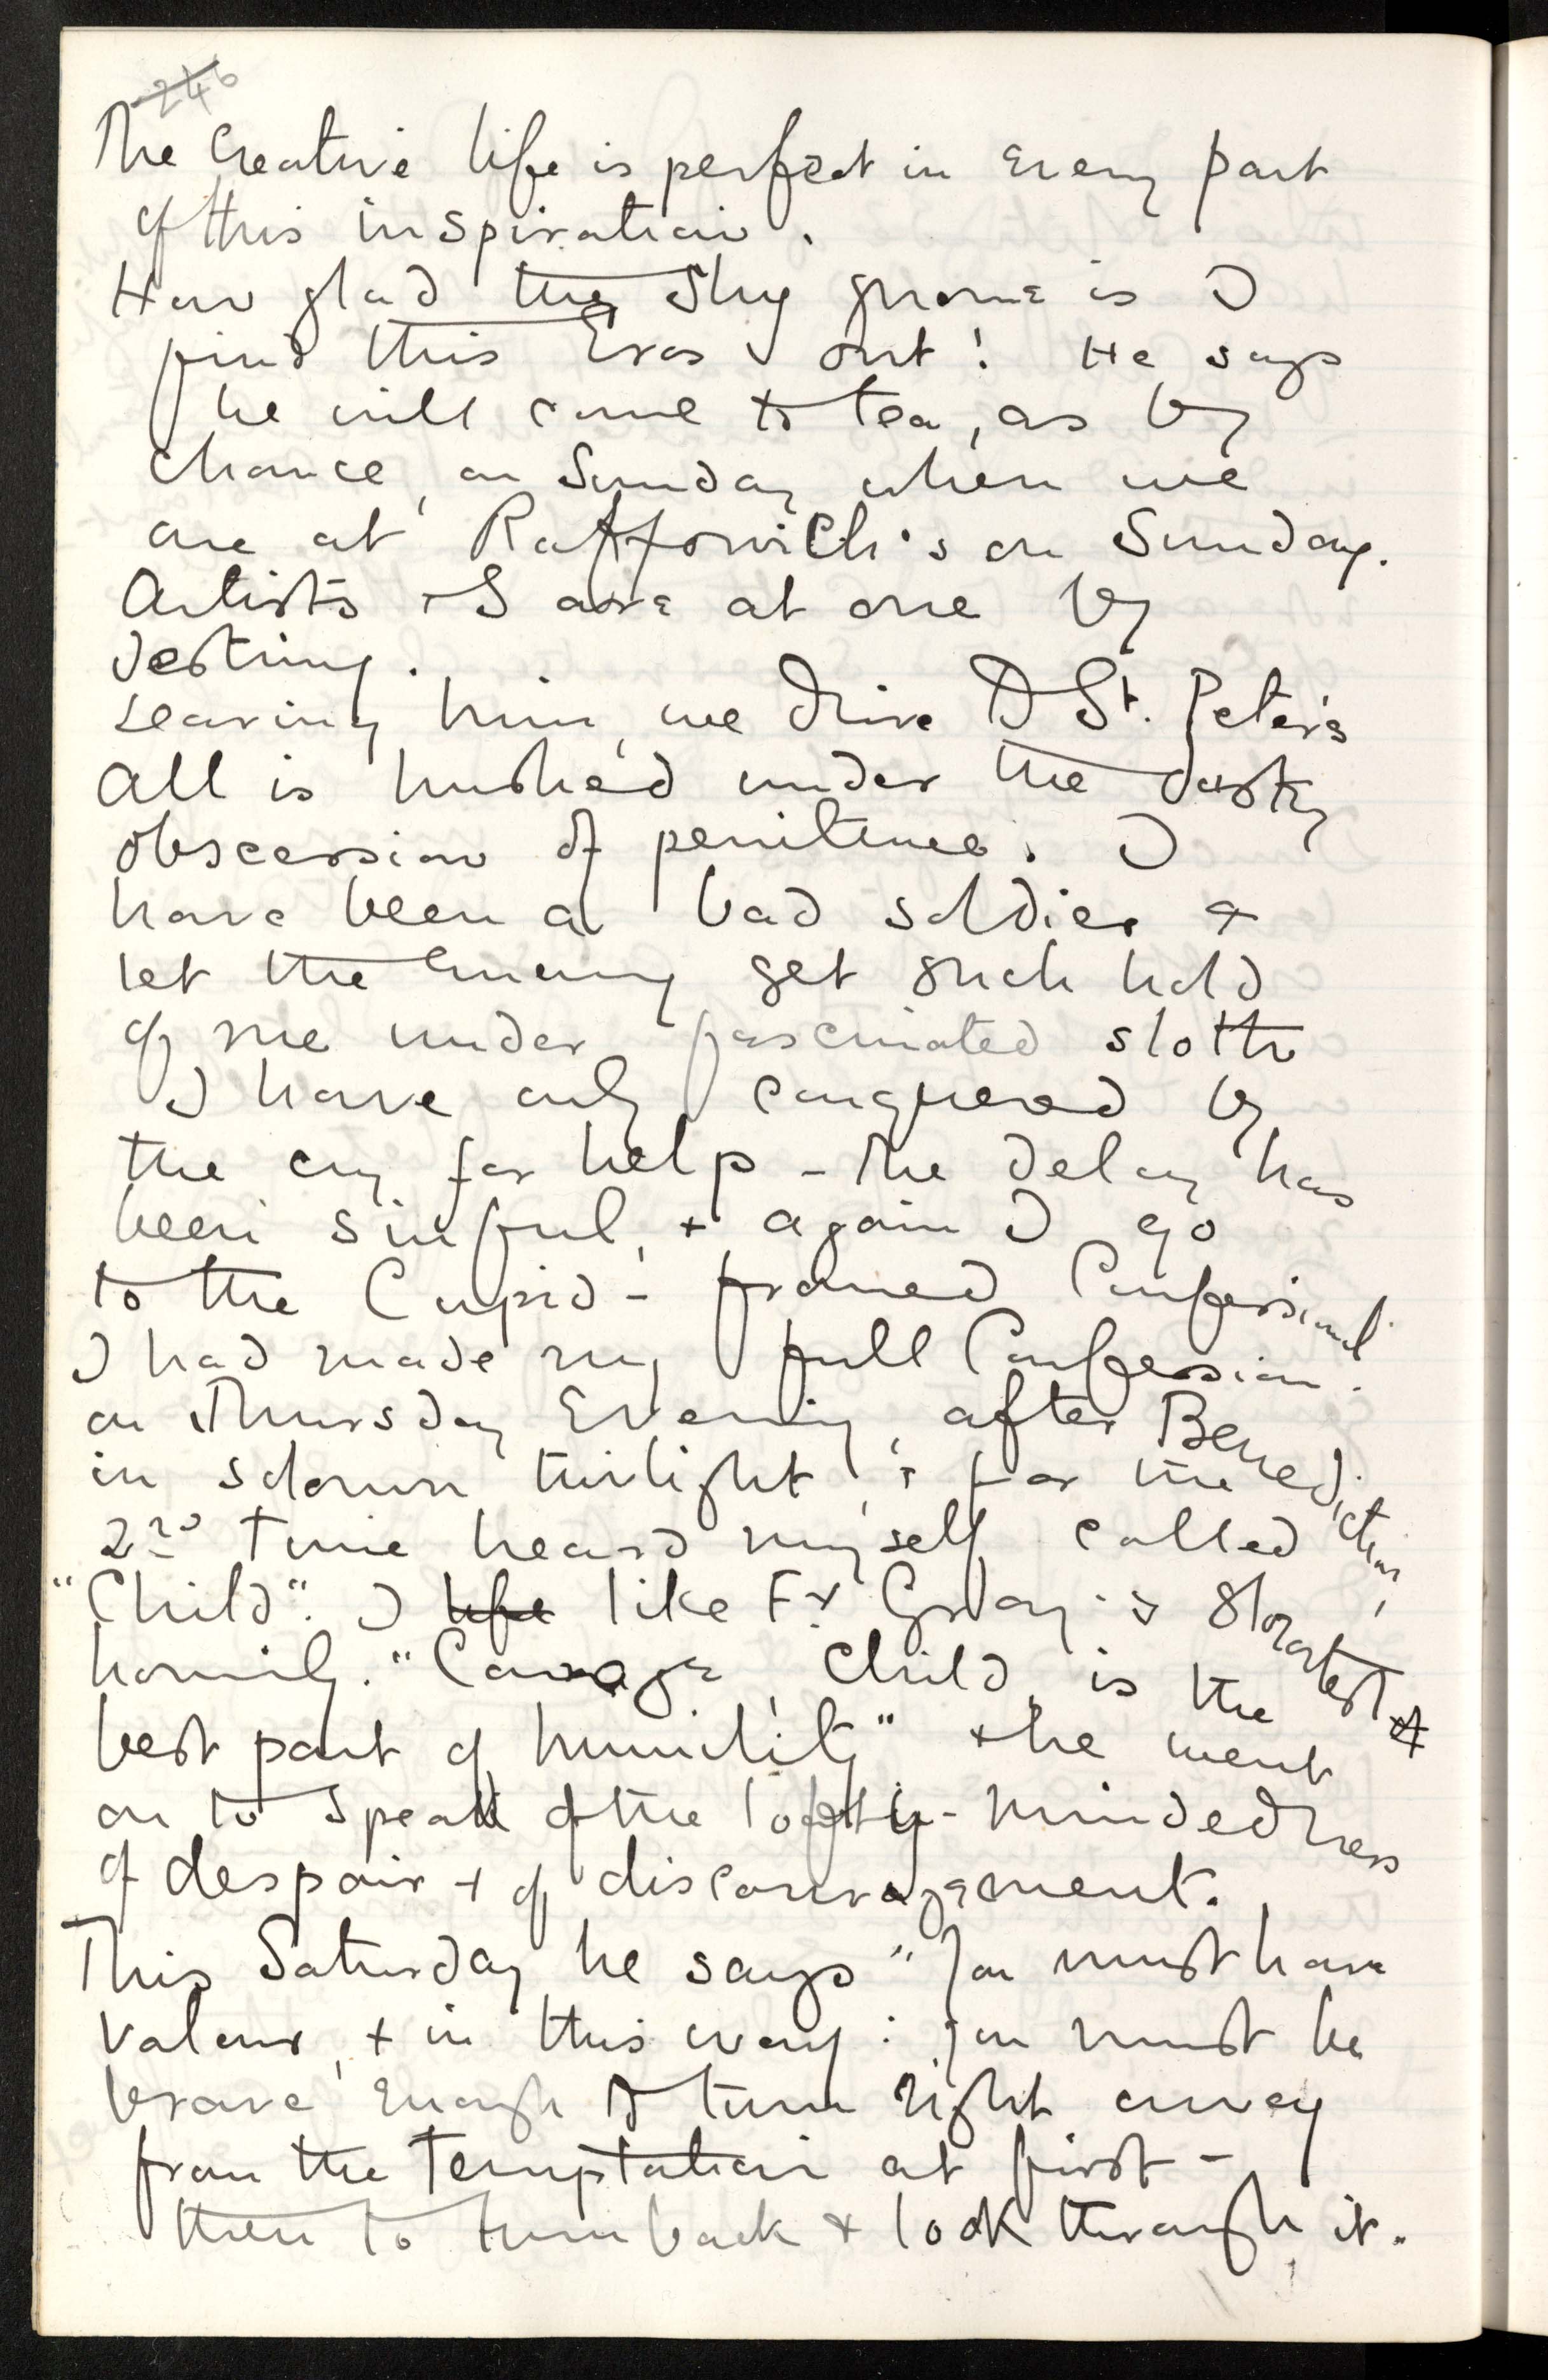 246
The Creative life is perfect in every part
of this inspiration.
How glad the shy gnome is I
find this Eros out! He says
he will come to tea, as by
chance, on Sunday when we
are at Raffowich's on Sunday.
Artists & I are at one by
destiny.
Leaving him, we drive to St. Peter's
All is hushed under the dusty
obscession of penitence. I
have been a bad soldier &
let the Enemy get such hold
of me under fascinated sloth
I have only conquered by
the cry for help - the delay has
been sinful, & again I go
to the Cupid-framed Confessional.
I had made my full Confession
on Thursday Evening, after Benediction,
in solemn twilight, & for the
2nd time heard myself called
"Child". I life like Fr Gray's shortest
homily. "Courage, Child, is the
best part of humility" & he went
on to speak of the lofty-mindedness
of despair & of discouragement.
This Saturday he says "You must have
valour, & in this way: you must be
brave enough to turn right away
from the temptation at first -
then to turn back & look through it.